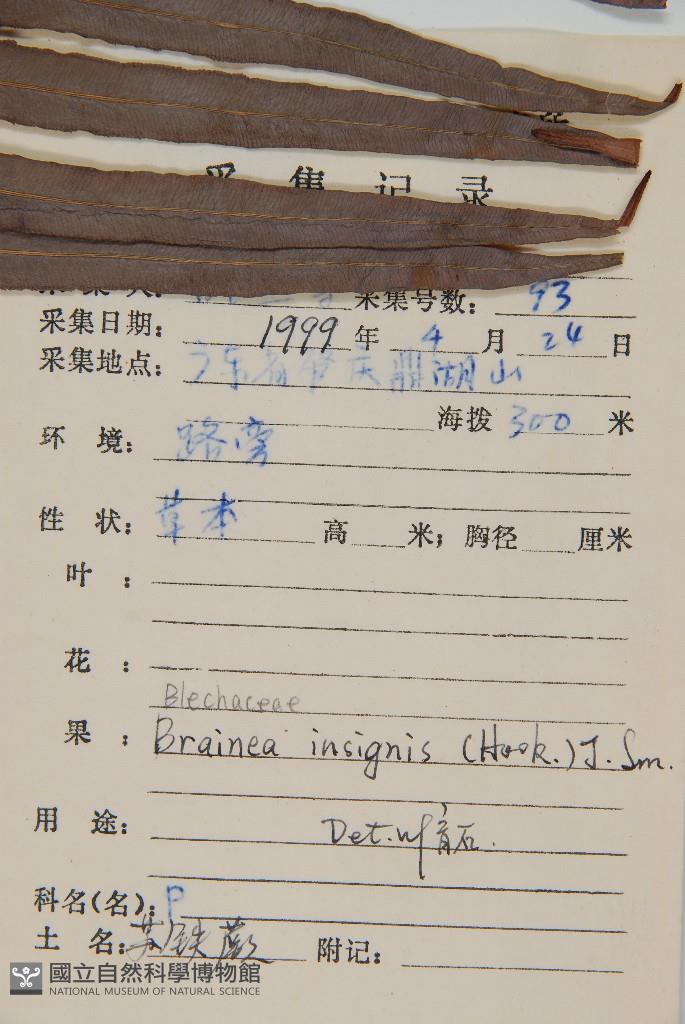 采集记录
采集号数: 93
采集日期: 1999 年 4 月 24 日
采集地点: 广东省肇庆鼎湖山
海拨 300 米
环 境: 路旁
性 状: 草本 高 米; 胸径 厘米
叶 :
花 :
Blechaceae
果 : Brainea insignis (Hook.) J. Sm.
用 途:
Det.
科名(名): P
土 名: 苏铁蕨 附记:
國立自然科學博物館
NATIONAL MUSEUM OF NATURAL SCIENCE